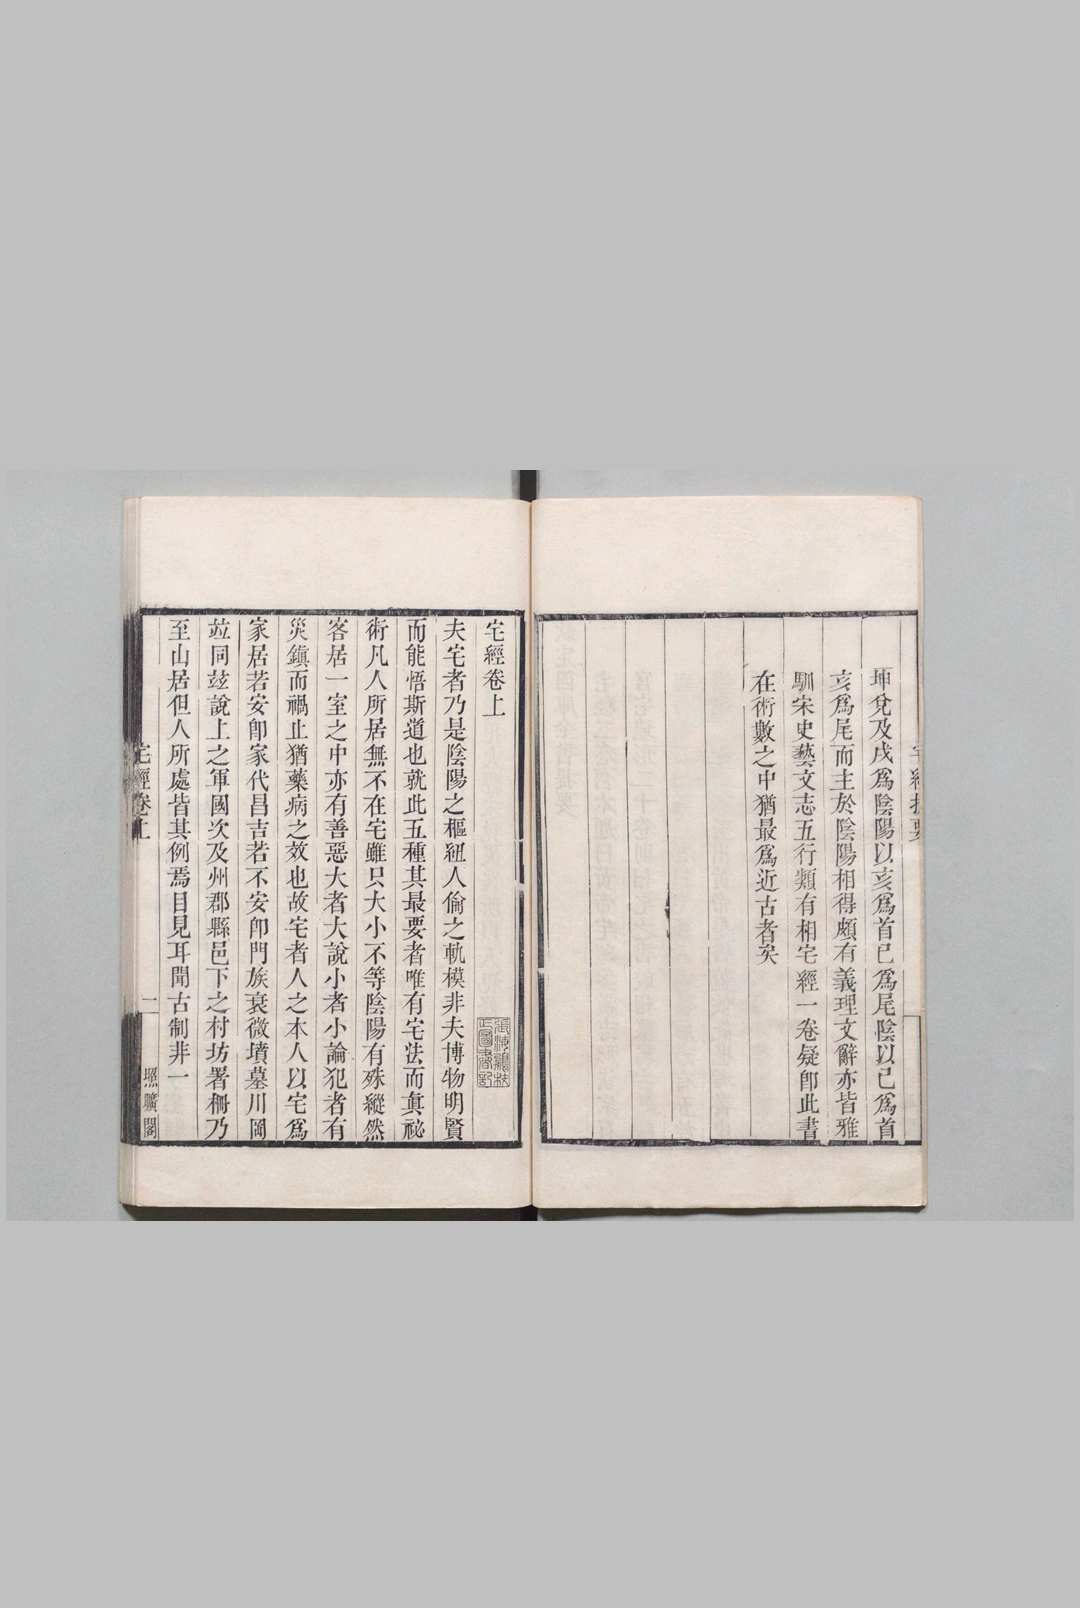 坤兌及戌爲陰陽以亥爲首巳爲尾陰以巳爲首
亥爲尾而主於陰陽相得頗有義理文辭亦皆雅
馴宋史藝文志五行類有相宅經一卷疑卽此書
在術數之中猶最爲近古者矣
宅經卷上
夫宅者乃是陰陽之樞紐人倫之軌模非夫博物明賢
而能悟斯道也就此五種其最要者唯有宅法而眞祕
術凡人所居無不在宅雖只大小不等陰陽有殊縱然
客居一室之中亦有善惡大者大說小者小論犯者有
災鎭而禍止猶藥病之效也故宅者人之本人以宅爲
家居若安卽家代昌吉若不安卽門族衰微墳墓川岡
竝同玆說上之軍國次及州郡縣邑下之村坊署柵乃
至山居但人所處皆其例焉目見耳聞古制非一
宅經卷上
二
照曠閣